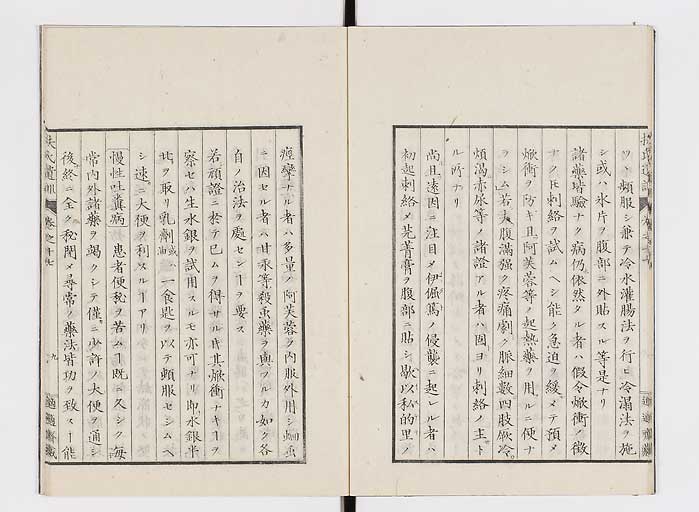 ツヽ頻服シ兼テ冷水灌腸法ヲ行ヒ冷溻法ヲ施
シ或ハ氷片ヲ腹部ニ外貼スル等是ナリ
諸藥皆驗ナク病仍依然タル者ハ假令焮衝ノ徴
ナク𪜈刺絡ヲ試ムヘシ能ク急迫ヲ緩メテ預メ
焮衝ヲ防キ且阿芙蓉等ノ起熱藥ヲ用ルニ便ナ
ラシム若夫腹滿强ク疼痛劇ク脈細數四肢厥冷
煩渴赤尿等ノ諸證アル者ハ固ヨリ刺絡ノ主ト
ル所ナリ
尚且遠因ニ注目メ傷冒ノ侵襲ニ起レル者ハ
初起刺絡メ芫菁膏ヲ腹部ニ貼シ歇以私的里ノ
痙攣ナル者ハ多量ノ阿芙蓉ヲ内服外用シ蛔蟲
ニ因セル者ハ甘汞等殺蟲藥ヲ與フルカ如ク各
自ノ治法ヲ處センヿヲ要ス
若頑證ニ於テ已ムヲ得サル𪜈其焮衝ナキヿヲ
察セハ生水銀ヲ試用スルモ亦可ナリ即水銀半
ヲ取リ乳劑或ハ油一食匙ヲ以テ頓服セシムヘ
シ速ニ大便ヲ利スルヿアリ
慢性吐糞病 患者便秘ヲ苦ムヿ既ニ久シク毎
常内外諸藥ヲ竭クシテ僅ニ少許ノ大便ヲ通シ
後終ニ全ク秘閉メ尋常ノ藥法皆功ヲ致スヿ能
扶氏遺訓 卷之十七 九 適適齋藏